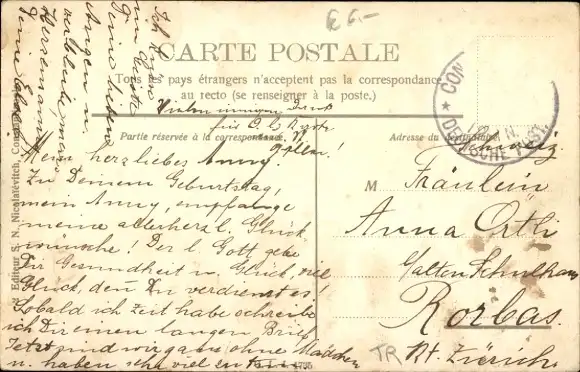 € 6.-
CARTE POSTALE
Tous les pays étrangers n'acceptent pas la correspondance
au recto (se renseigner à la poste.)
Partie réservée à la correspondance
Adresse du destinataire
CON
DEUTSCHE POST
Mein herzliebes Anny!
Zu Deinem Geburtstag,
mein Anny, empfange
meine allerherzl. Glück
wünsche! Der l. Gott gebe
Dir Gesundheit u. Glück, viel
Glück, den Du verdienst es!
Sobald ich Zeit habe schreibe
ich Dir einen langen Brief.
Jetzt sind wir ganz ohne Mädchen
u. haben sehr viel zu tun
Ich
Deine
verbleibe
Editeur S. N. Nicolaïévitch,
Schweiz
M
Fräulein
Anna Orthi
z/alten Schulhaus
Rorbas.
Kt. Zürich
TR